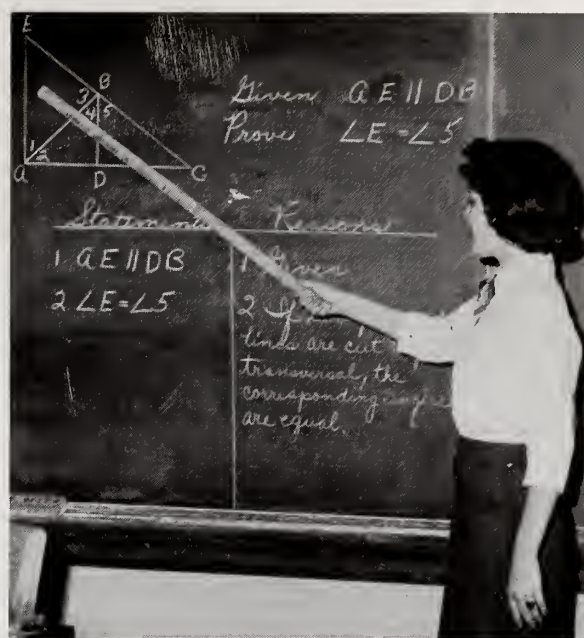 E
B
3
4 5
1
2
A D C
Given AE || DB
Prove ∠E = ∠5
Statements Reasons
1 AE || DB
2 ∠E = ∠5
1 Given
2 If
lines are cut
transversal, the
corresponding angles
are equal.